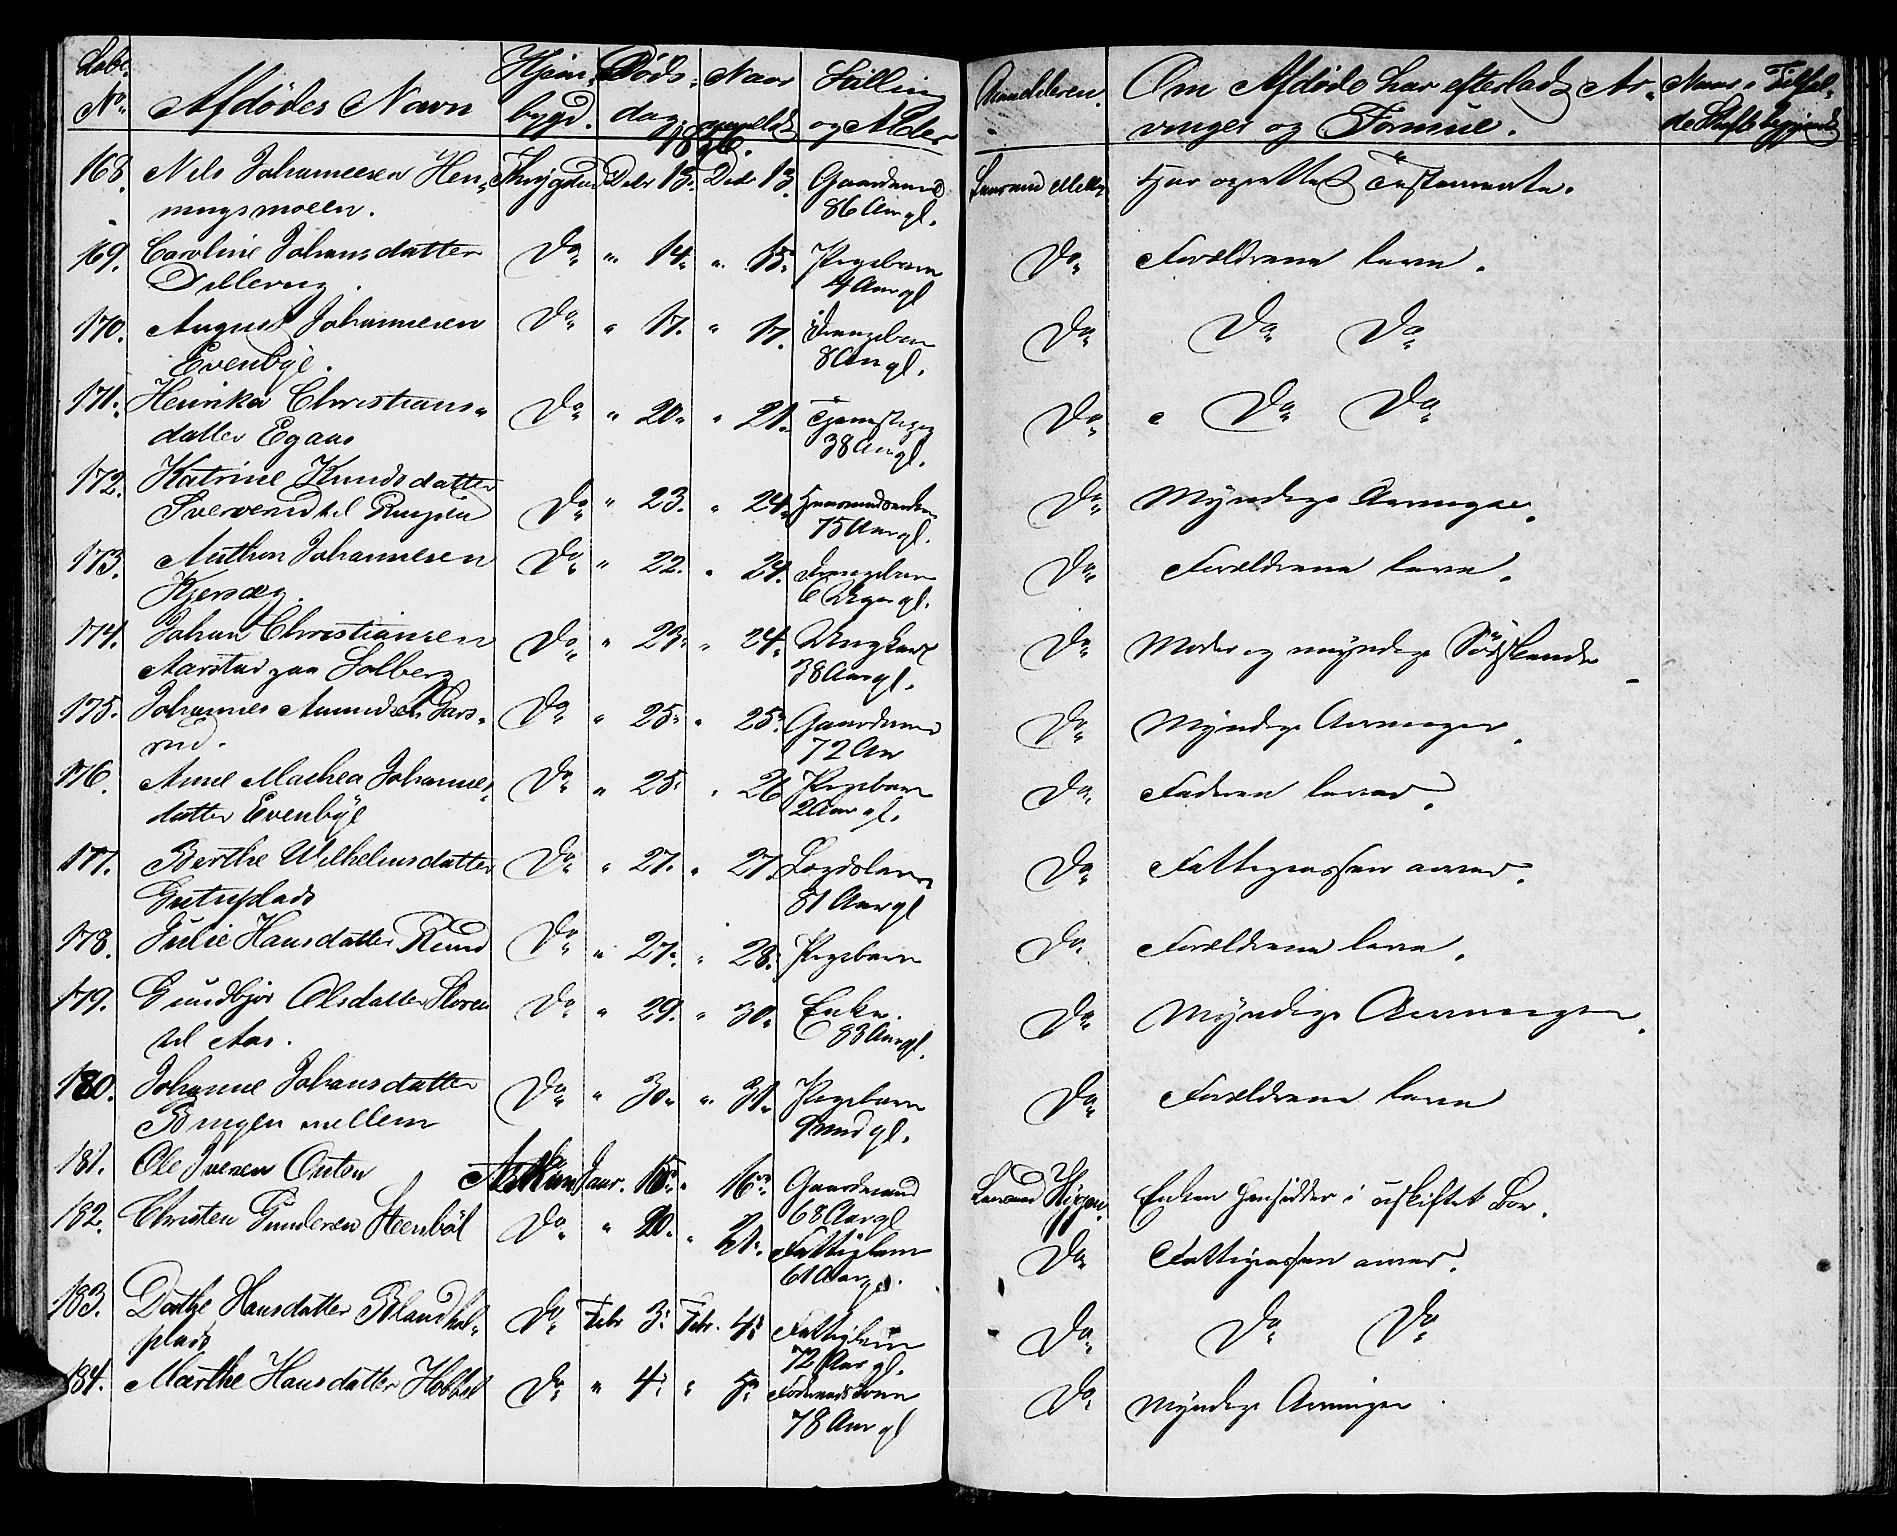 Løbe No. Afdødes Navn Hjembygd. Dødsdag Naar anmeldt Stilling og Alder Anmelderen. Om Afdøde har efterladt Arvinger og Formue. Naar i Tilfælde Skifte begyndt
1876.
168. Nils Johannesen Henningsmoen. Trygstad Decbr 13. Decbr 13. Gaardmand 86 Aar gl. Lensmand Har oprettet Testamente.
169. Caroline Johansdatter Dillerug. Do " 14. " 15. Pigebarn 4 Aar gl Do Forældrene leve.
170. August Johannesen Evenbye. Do " 17. " 17. Drengebarn 8 Aar gl. Do Do Do
171. Henrika Christiansdatter Egaas Do " 20. " 21. Tjenestepige 38 Aar gl. Do Do Do
172. Katrine Knudsdatter Sververud til Do " 23. " 24. 75 Aar gl. Do Myndige Arvinger.
173. Anthon Johannesen Kjersæg. Do " 22. " 24. Drengebarn 6 Uger gl. Do Forældrene leve.
174. Johan Christiansen Aarstad paa Solberg Do " 23. " 24. Ungkarl 38 Aar gl. Do Moder og myndige Södskende
175. Johannes Amundsen Garsrud. Do " 25. " 25. Gaardmand 72 Aar Do Myndige Arvinger.
176. Anne Mathea Johannesdatter Evenbye Do " 25. " 26 Pigebarn 2 Aar gl. Do Faderen lever.
177. Berthe Wilhelmsdatter Do " 27. " 27. Lægdslem 81 Aar gl Do Fattigcassen arver.
178. Julie Hansdatter Ruud Do " 27. " 28. Pigebarn Do Forældrene leve.
179. Gundbjør Olsdatter til Aas. Do " 29. " 30. Enke. 83 Aar gl. Do Myndige Arvinger.
180. Johanne Johansdatter Bingen mellem Do " 30. " 31. Pigebarn gl. Do Forældrene leve
181. Ole Iversen Onten Askim Janur. 15. " 16. Gaardmand 68 Aar gl Lensmand Enken hensidder i uskiftet Bo.
182. Christen Gundersen Steenböl Do " 20. " 21. Fattiglem 61 Aar gl. Do Fattigcassen arver.
183. Dorthe Hansdatter plads Do Febr 3. Febr. 4. Fattiglem 72 Aar gl. Do Do Do
184. Marthe Hansdatter Do " 4. " 5. Föderaadskone 78 Aar gl Do Myndige Arvinger.